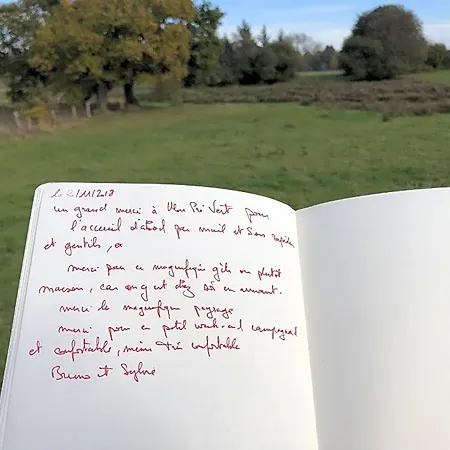 le 2/11/218
un grand merci à Mon Pré Vert pour
l'accueil d'abord par mail et sms rapides
et gentils,
merci pour ce magnifique gîte ou plutôt
maison, car on y est chez soi en arrivant.
merci le magnifique paysage
merci pour ce petit week-end campagnard
et confortable, même très confortable
Bruno et Sylvie